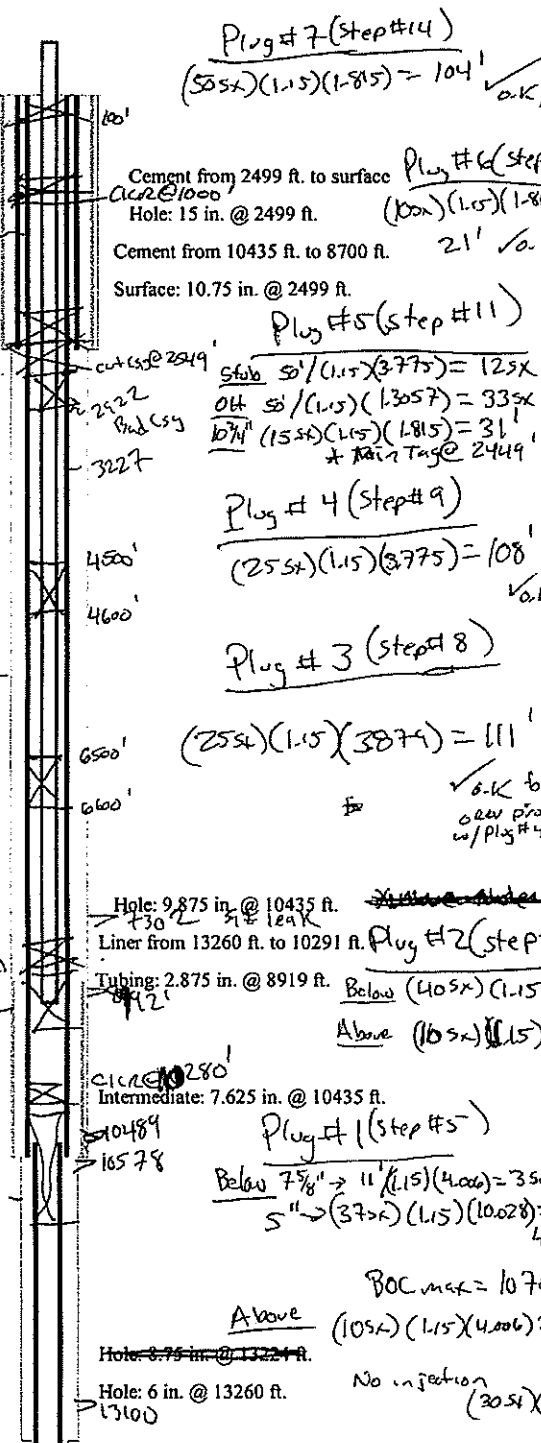 Plug # 7 (step #14)
(50sx)(1.15)(1.815) = 104'
o.K
100'
Cement from 2499 ft. to surface
Plug #6 (step
CICR@1000'
Hole: 15 in. @ 2499 ft.
(10sx)(1.15)(1.8
Cement from 10435 ft. to 8700 ft.
21'
Surface: 10.75 in. @ 2499 ft.
Plug #5 (step #11)
cut csg@2549'
Stub 50'/(1.15)(3.775) = 12sx
2922
Bad Csg
OH 50'/(1.15)(1.3057) = 33sx
10 3/4" (15sx)(1.15)(1.815) = 31'
3227
* Min Tag@ 2449'
Plug # 4 (step #9)
4500'
(25sx)(1.15)(3.775) = 108'
4600'
Plug # 3 (step #8)
6500'
(25sx)(1.15)(3.879) = 111'
6600'
o.K
w/Plug #4
Hole: 9.875 in. @ 10435 ft.
7302 leak
Liner from 13260 ft. to 10291 ft.
Plug #2 (step
Tubing: 2.875 in. @ 8919 ft.
Below (40sx)(1.15
Above (10sx)(1.15)
CICR@10280'
Intermediate: 7.625 in. @ 10435 ft.
10489
Plug #1 (step #5)
10578
Below 7 5/8" → 11'/(1.15)(4.006) = 3s
5" → (37sx)(1.15)(10.028)=
4
BOC max = 107
Above (10sx)(1.15)(4.006)=
Hole: 8.75 in. @ 13224 ft.
Hole: 6 in. @ 13260 ft.
No injection
13100
(30sx)(